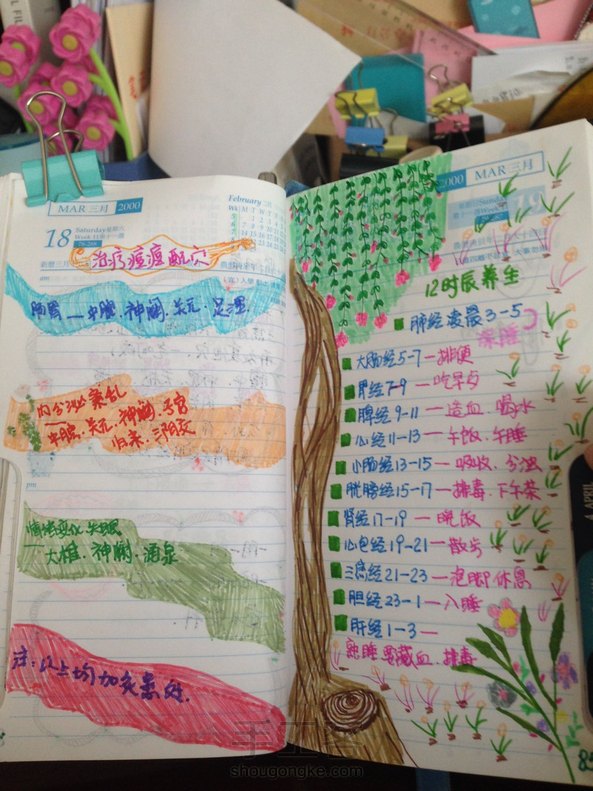 MAR 三月 2000
February
18
Saturday 星期六
治疗痘痘配穴
肠胃 — 中脘、神阙、关元、足三里
内分泌紊乱
— 中脘、关元、神阙、子宫
归来、三阴交
情绪变化、失眠
— 大椎、神阙、涌泉
注：以上均加灸患处.
2000 MAR 三月
12时辰养生
肺经凌晨3-5
深睡
大肠经5-7—排便
胃经7-9—吃早点
脾经9-11—造血、喝水
心经11-13—午饭、午睡
小肠经13-15—吸收、分泌
膀胱经15-17—排毒、下午茶
肾经17-19—晚饭
心包经19-21—散步
三焦经21-23—泡脚休息
胆经23-1—入睡
肝经1-3—
熟睡 要藏血、排毒
shougongke.com